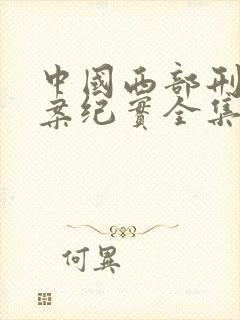 中國西部刑
案纪實全集
何異